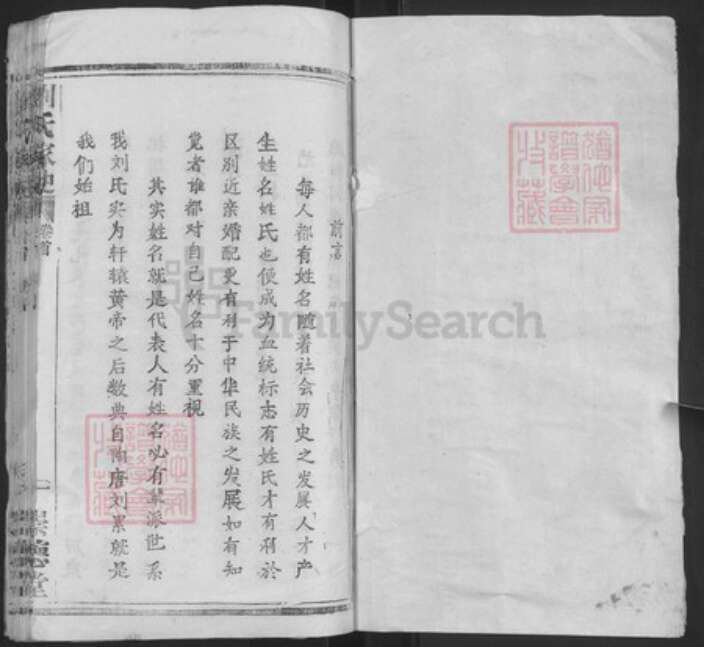 前言
每人都有姓名随着社会历史之发展人才产
生姓名姓氏也便成为血统标志有姓氏才有利於
区别近亲婚配更有利于中华民族之发展如有知
觉者谁都对自己姓名十分重视
其实姓名就是代表人有姓名必有辈派世系
我刘氏实为轩辕黄帝之后数典自陶唐刘累就是
我们始祖
刘氏家史
卷首
一
FamilySearch
收藏
谱学会